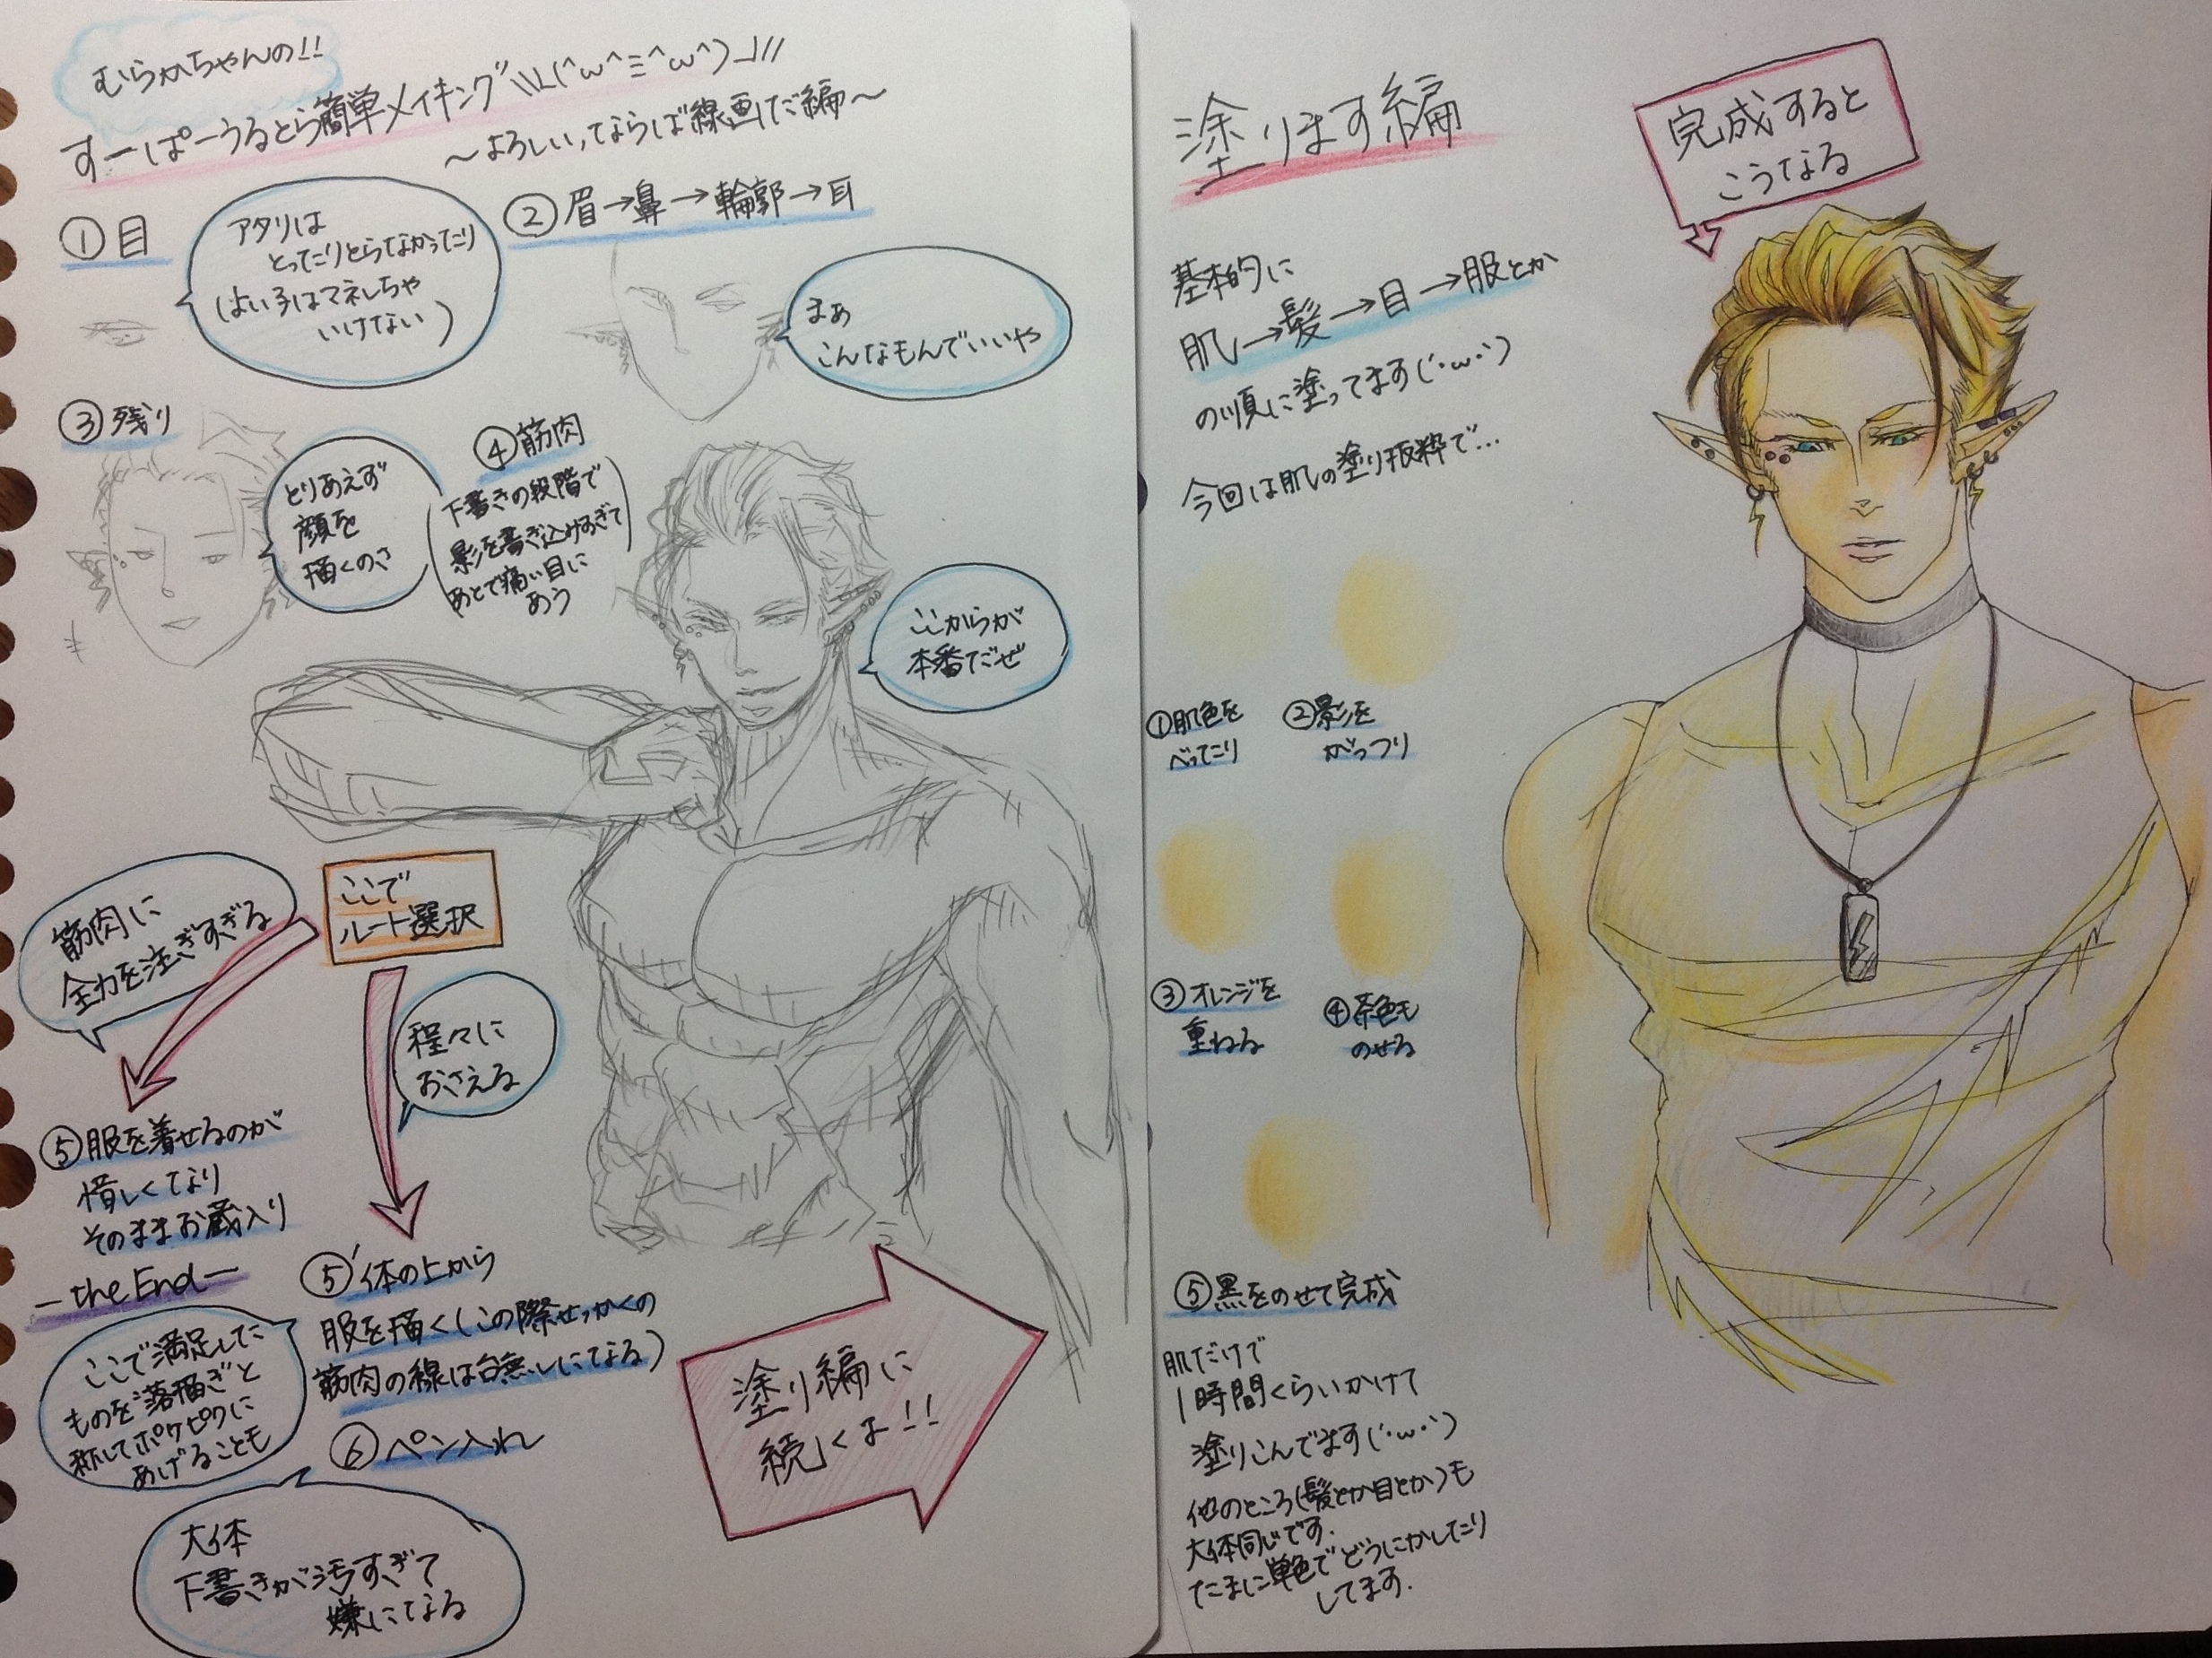 むらかちゃんの!!
すーぱーうるとら簡単メイキング\\\L(^ω^ミ^ω^)」//
～よろしい,ならば線画だ編～
①目
アタリは
とったりとらなかったり
(よい子はマネしちゃ
いけない)
②眉→鼻→輪郭→耳
まぁ
こんなもんでいいや
③残り
とりあえず
顔を
描くのさ
④筋肉
(下書きの段階で
影を書き込みすぎて
あとで痛い目に
あう)
ここからが
本番だぜ
ここで
ルート選択
筋肉に
全力を注ぎすぎる
程々に
おさえる
⑤服を着せるのが
惜しくなり
そのままお蔵入り
―the End―
ここで満足した
ものを落描きと
称してポケピクに
あげることも
⑤'体の上から
服を描く(この際せっかくの
筋肉の線は台無しになる)
⑥ペン入れ
大体
下書きが汚すぎて
嫌になる
塗り編に
続くよ!!
塗ります編
完成すると
こうなる
基本的に
肌→髪→目→服とか
の順に塗ってます(´・ω・`)
今回は肌の塗り抜粋で…
①肌色を
べったり
②影を
がっつり
③オレンジを
重ねる
④茶色も
のせる
⑤黒をのせて完成
肌だけで
1時間くらいかけて
塗りこんでます(´・ω・`)
他のところ(髪とか目とか)も
大体同じです.
たまに単色でどうにかしたり
してます.